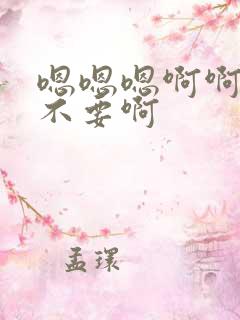 嗯嗯嗯啊啊
不要啊
孟环